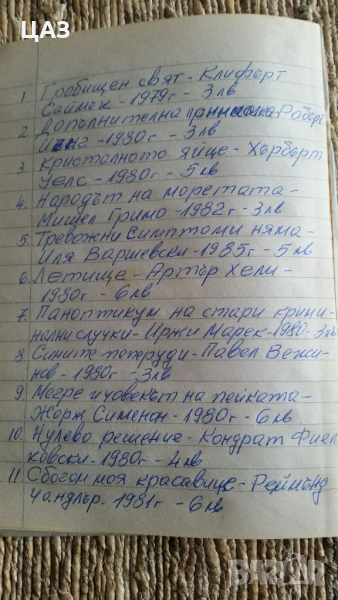 ЦАЗ
1. Гробищен свят - Клифърт
Саймък - 1979г - 3лв
2. Допълнителна Робърт
1980г - 3лв
3. Кристалното яйце - Хърбърт
Уелс - 1980г - 5лв
4. Народът на моретата -
Мишел Гримо - 1982г - 3лв
5. Тревожни симптоми няма -
Иля Варшевски - 1985г - 5лв
6. Летище - Артър Хели -
1980г - 6лв
7. Паноптикум на стари крими-
нални случки - Иржи Марек - 1980 - 3лв
8. Сините пеперуди - Павел Вежи-
нов - 1980г - 3лв
9. Мегре и човекът на пейката -
Жорж Сименон - 1980г - 6лв
10. Нулево решение - Кондрат Фиел
ковски - 1980г - 4лв
11. Сбогом моя красавице - Реймънд
Чандлър. 1981г - 6лв